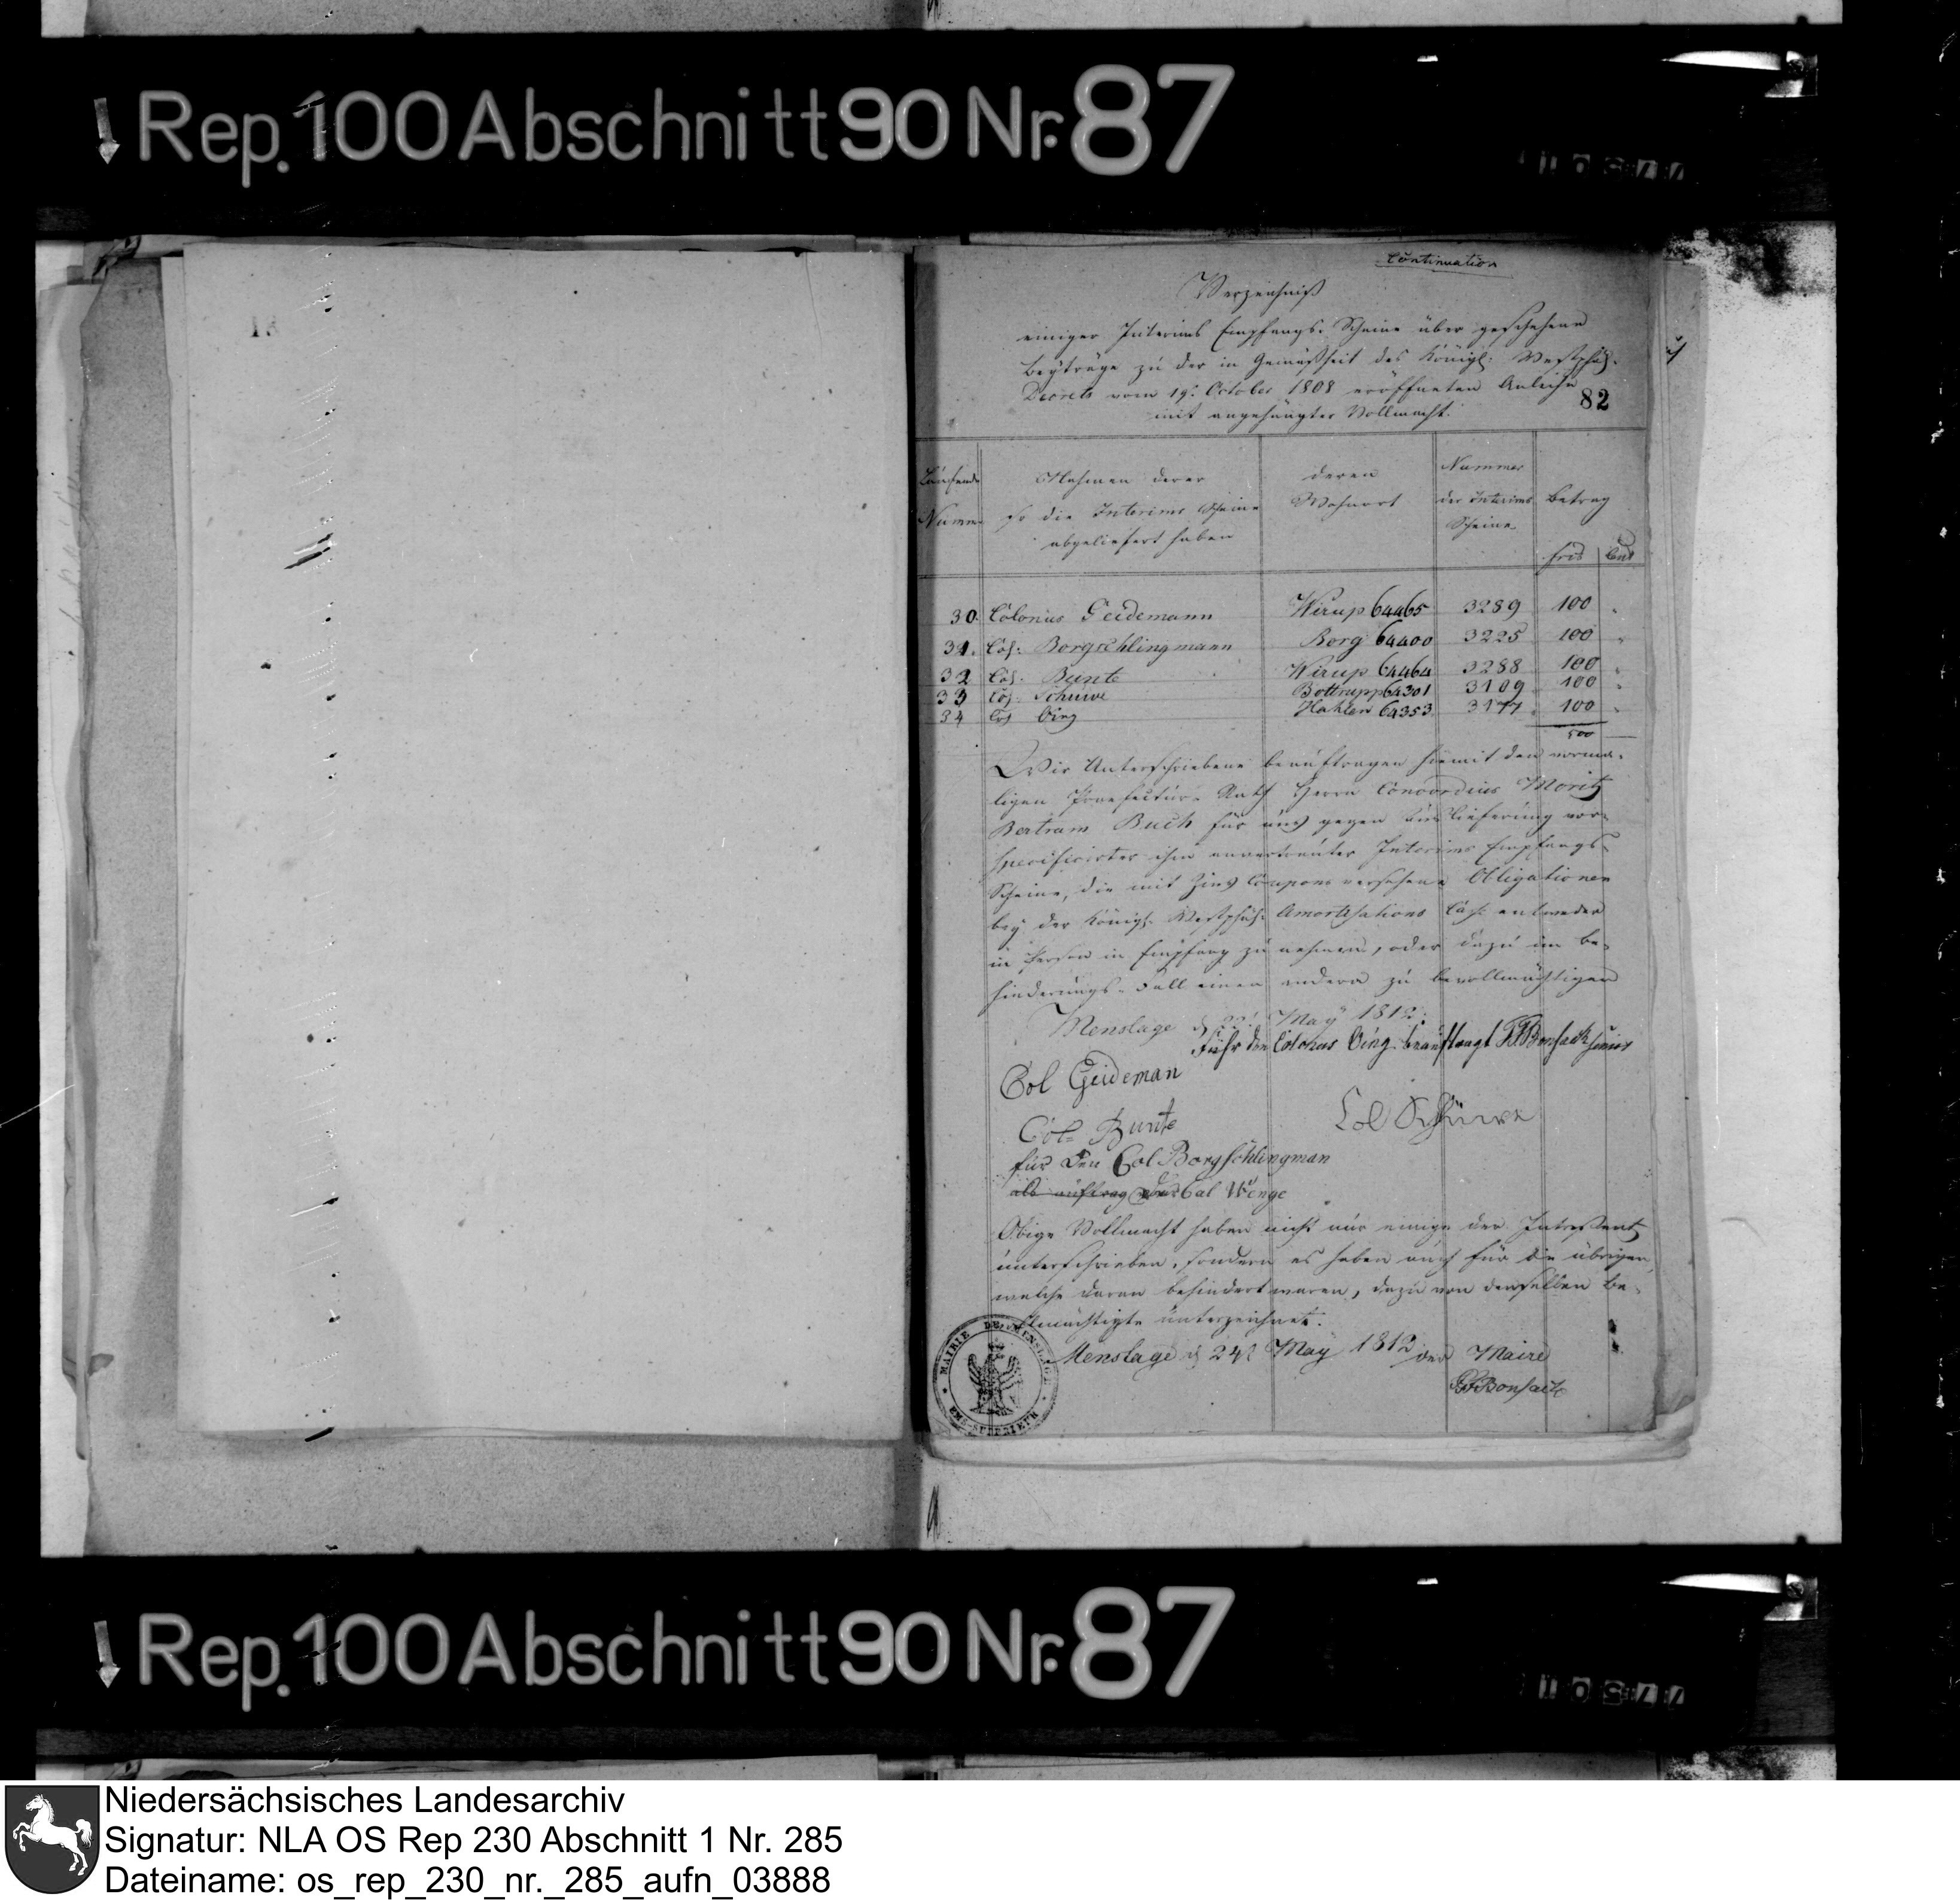 Rep. 100 Abschnitt 90 Nr. 87
Continuation
Verzeichniß
einiger Interims Empfangs-Scheine über geschehene
Beyträge zu der in Gemäßheit des Königl. Westphäl.
Decrets vom 19t October 1808 eröffneten Anleihe
mit angehängter Vollmacht.
82
Laufende Numer
Nahmen derer so die Interims Scheine abgeliefert haben
deren Wohnort
Nummer der Interims Scheine
Betrag
frcs Cent
30. Colonus Geidemann Wirup 64465 3289 100 "
31. Col: Borgschlingmann Borg 64400 3225 100 "
32 Col. Bunte Wirup 64464 3288 100 "
33 Col: Schuwe Bottrupp 64301 3109 100 "
34 Col Oing Hahlen 64353 3177 100 "
500
Wir Unterschriebene beauftragen hiemit den vorma-
ligen Praefectur-Rath Herrn Concordius Moritz
Bertram Buch für uns gegen Auslieferung vor-
specificirter ihm anvertrauter Interims Empfangs-
Scheine, die mit Zins Coupons versehene Obligationen
bey der Königl. Westphäl. Amortisations Casse entweder
in Person in Empfang zu nehmen, oder dazu im Be-
hinderungs-Fall einen andern zu bevollmächtigen
Menslage d 22t May 1812.
Führ den Colonus Oing beauftragt Bonsack junior
Col Geideman
Col Schuwe
Col= Bunte
für den Col Borgschlingman
als auftrag der Col Wenge
Obige Vollmacht haben nicht nur einige der Intressenten
unterschrieben, sondern es haben auch für die übrigen,
welche daran behindert waren, dazu von denselben Be-
vollmächtigte unterzeichnet.
Menslage d 24t May 1812 der Maire
Bonsack
MAIRIE DE MENSLAGE
EMS-SUPERIEUR
Rep. 100 Abschnitt 90 Nr. 87
Niedersächsisches Landesarchiv
Signatur: NLA OS Rep 230 Abschnitt 1 Nr. 285
Dateiname: os_rep_230_nr._285_aufn_03888